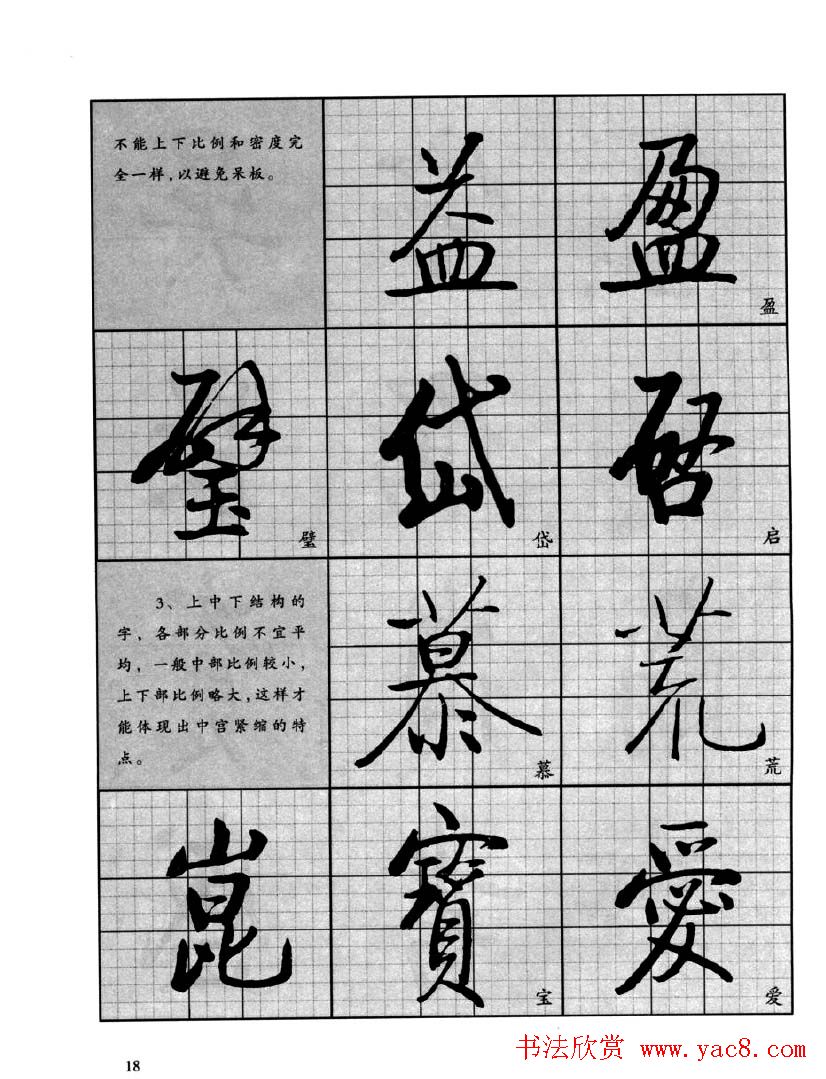 不能上下比例和密度完
全一样，以避免呆板。
益
盈
盈
璧
璧
岱
岱
启
启
3、上中下结构的
字，各部分比例不宜平
均，一般中部比例较小，
上下部比例略大，这样才
能体现出中宫紧缩的特
点。
慕
慕
荒
荒
崑
寶
宝
愛
爱
18
书法欣赏 www.yac8.com